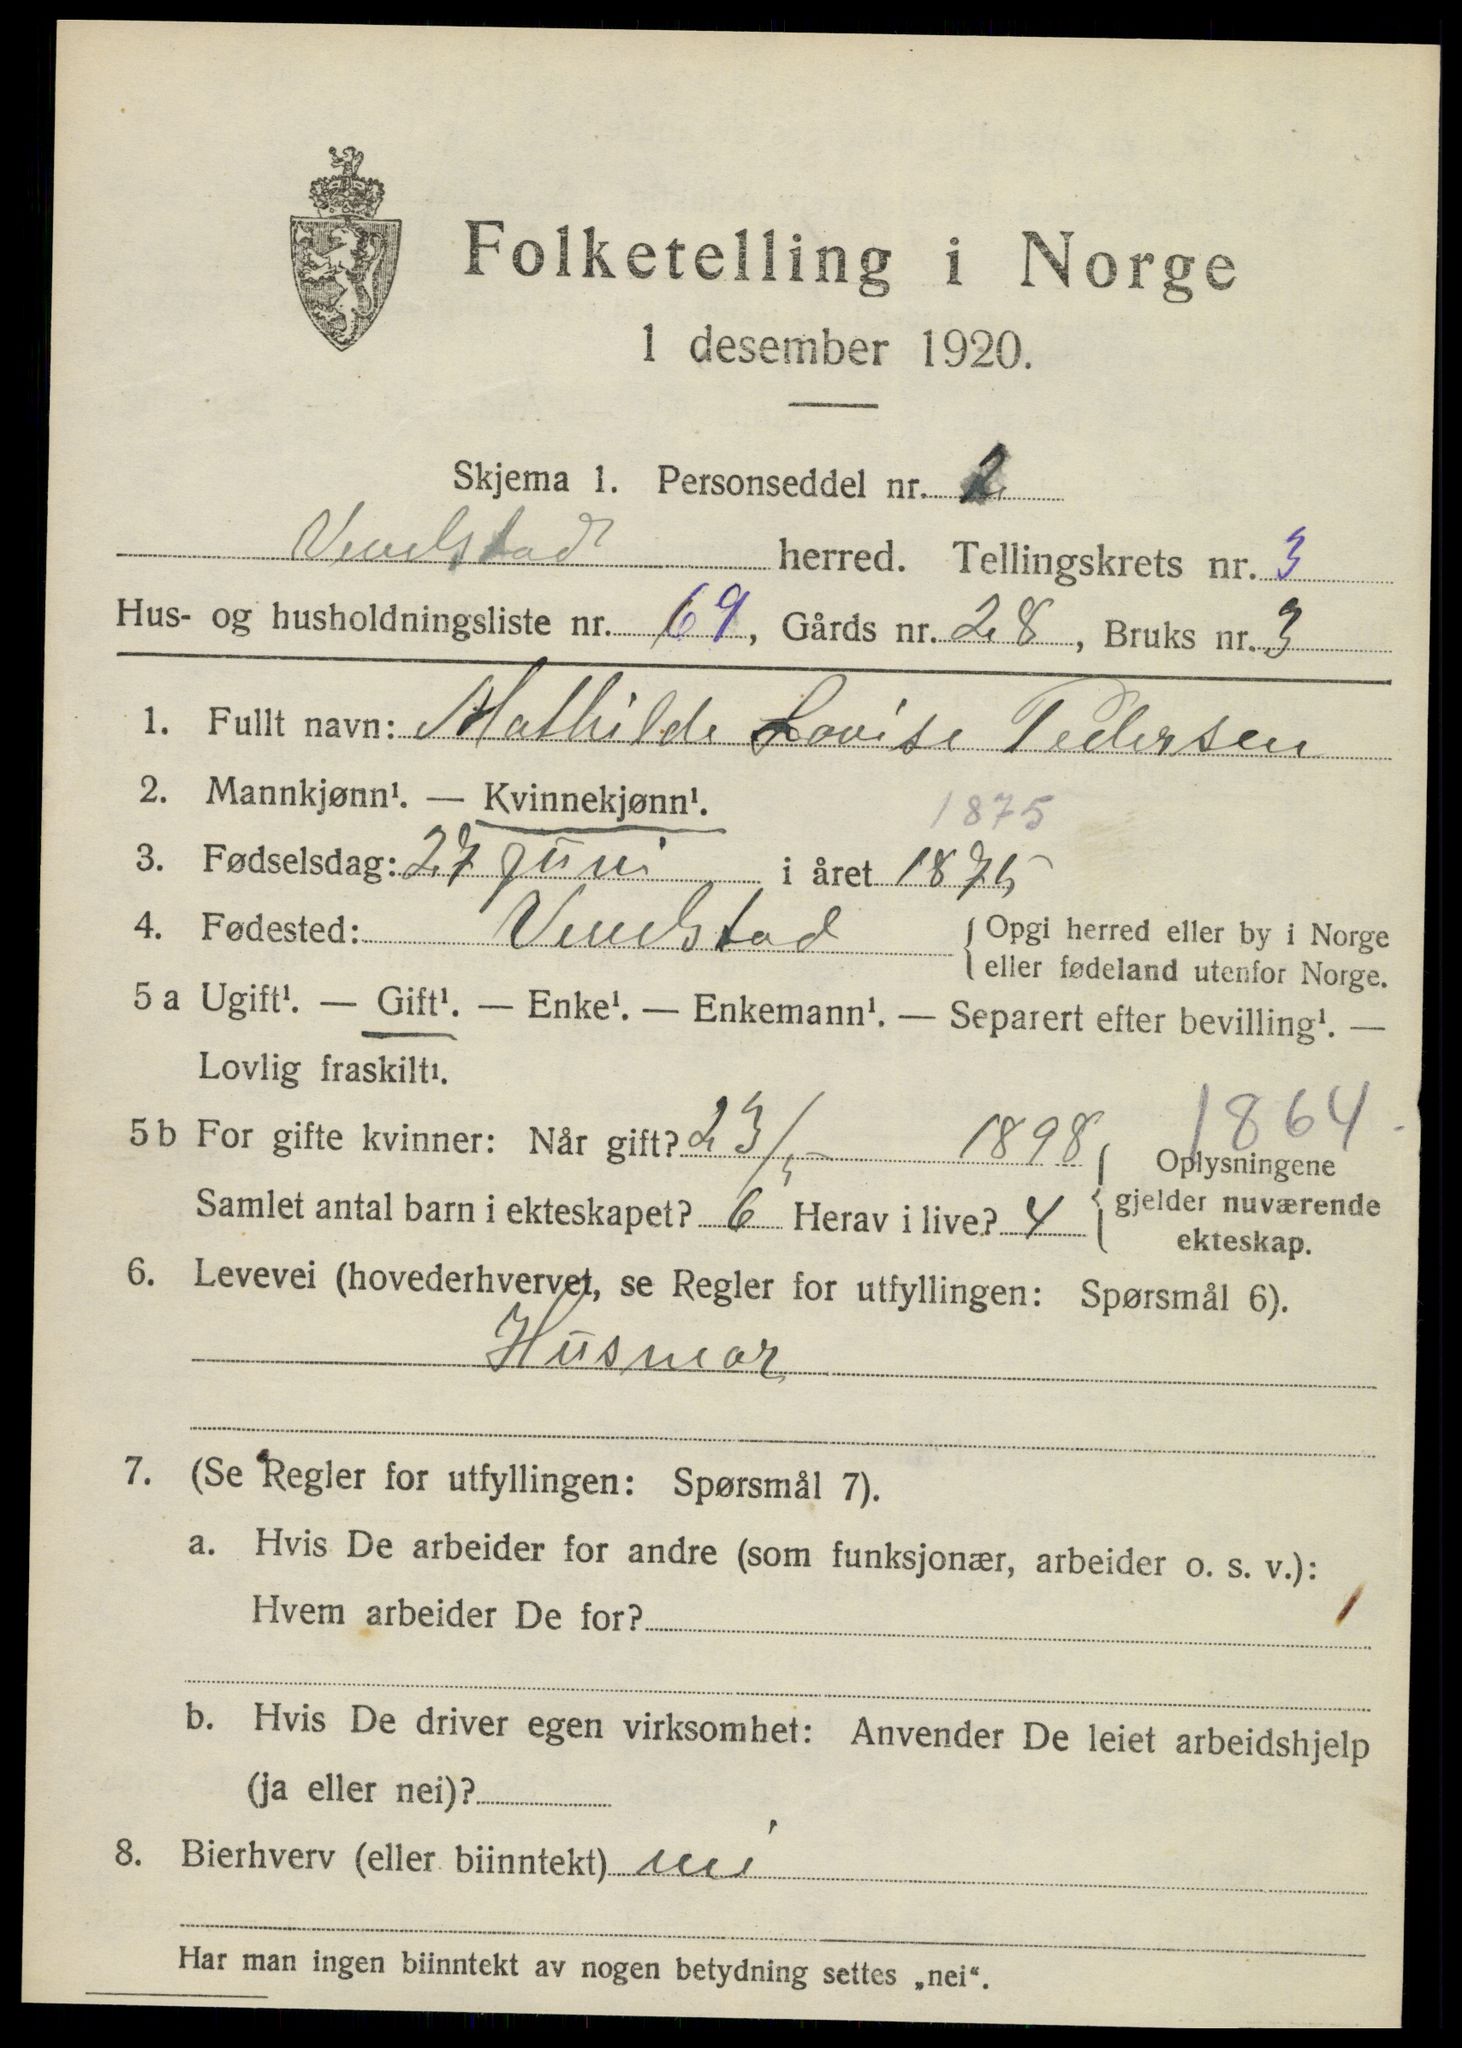 Folketelling i Norge
1 desember 1920.
Skjema 1. Personseddel nr. 2
herred. Tellingskrets nr. 3
Hus- og husholdningsliste nr. 69, Gårds nr. 28, Bruks nr. 3
1. Fullt navn: Mathilde Lovise Pedersen
2. Mannkjønn¹. — Kvinnekjønn¹.
1875
3. Fødselsdag: 27 juni i året 1875
4. Fødested: { Opgi herred eller by i Norge
eller fødeland utenfor Norge.
5 a Ugift¹. — Gift¹. — Enke¹. — Enkemann¹. — Separert efter bevilling¹. —
Lovlig fraskilt¹.
1864
5 b For gifte kvinner: Når gift? 23/5 1898 { Oplysningene
Samlet antal barn i ekteskapet? 6 Herav i live? 4 gjelder nuværende
ekteskap.
6. Levevei (hovederhvervet, se Regler for utfyllingen: Spørsmål 6).
Husmor
7. (Se Regler for utfyllingen: Spørsmål 7).
a. Hvis De arbeider for andre (som funksjonær, arbeider o. s. v.):
Hvem arbeider De for?
b. Hvis De driver egen virksomhet: Anvender De leiet arbeidshjelp
(ja eller nei)?
8. Bierhverv (eller biinntekt) nei
Har man ingen biinntekt av nogen betydning settes „nei“.